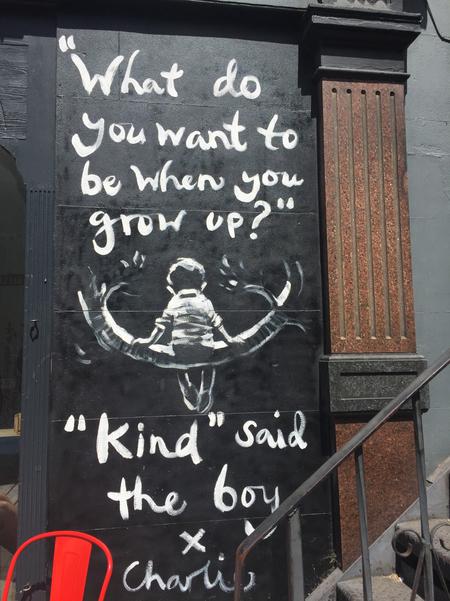 "What do
you want to
be when you
grow up?"
"Kind" said
the boy
x
Charlie